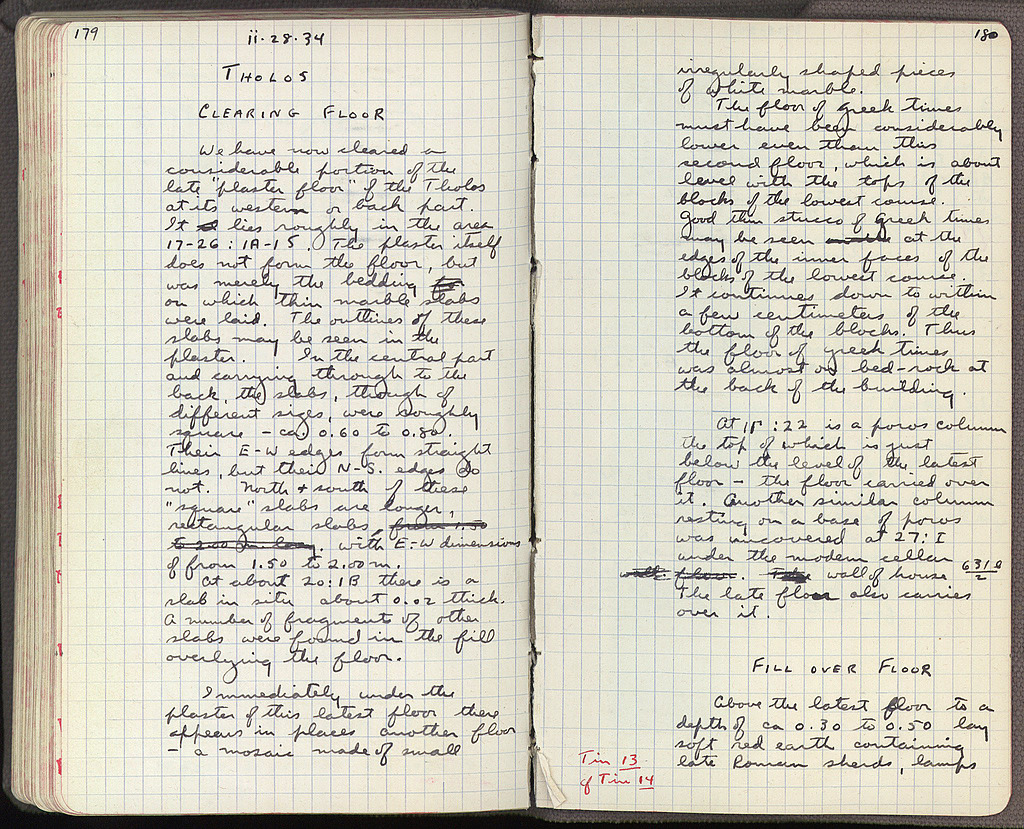 179
ii·28·34
THOLOS
CLEARING FLOOR
We have now cleared a
considerable portion of the
late "plaster floor" of the Tholos
at its western or back part.
It lies roughly in the area
17-26 : IA-15. The plaster itself
does not form the floor, but
was merely the bedding
on which thin marble slabs
were laid. The outlines of these
slabs may be seen in the
plaster. In the central part
and carrying through to the
back, the slabs, though of
different sizes, were roughly
square – ca. 0.60 to 0.80.
Their E-W edges form straight
lines, but their N-S. edges do
not. North + south of these
"square" slabs are longer,
rectangular slabs, from 1.50
to 2.00 m. long. with E-W dimensions
of from 1.50 to 2.00 m.
At about 20:IB there is a
slab in situ about 0.02 thick.
A number of fragments of other
slabs were found in the fill
overlying the floor.
Immediately under the
plaster of this latest floor there
appears in places another floor
– a mosaic made of small
180
irregularly shaped pieces
of white marble.
The floor of Greek times
must have been considerably
lower even than this
second floor, which is about
level with the tops of the
blocks of the lowest course.
Good thin stucco of Greek times
may be seen at the
edges of the inner faces of the
blocks of the lowest course.
It continues down to within
a few centimeters of the
bottom of the blocks. Thus
the floor of Greek times
was almost on bed-rock at
the back of the building.
At :22 is a poros column
the top of which is just
below the level of the latest
floor – the floor carried over
it. Another similar column
resting on a base of poros
was uncovered at 27:I
under the modern cellar
wall. floor. The wall of house 631a/2
The late floor also carries
over it.
FILL OVER FLOOR
Above the latest floor to a
depth of ca 0.30 to 0.50 lay
soft red earth containing
late Roman sherds, lamps
Tin 13
cf Tin 14